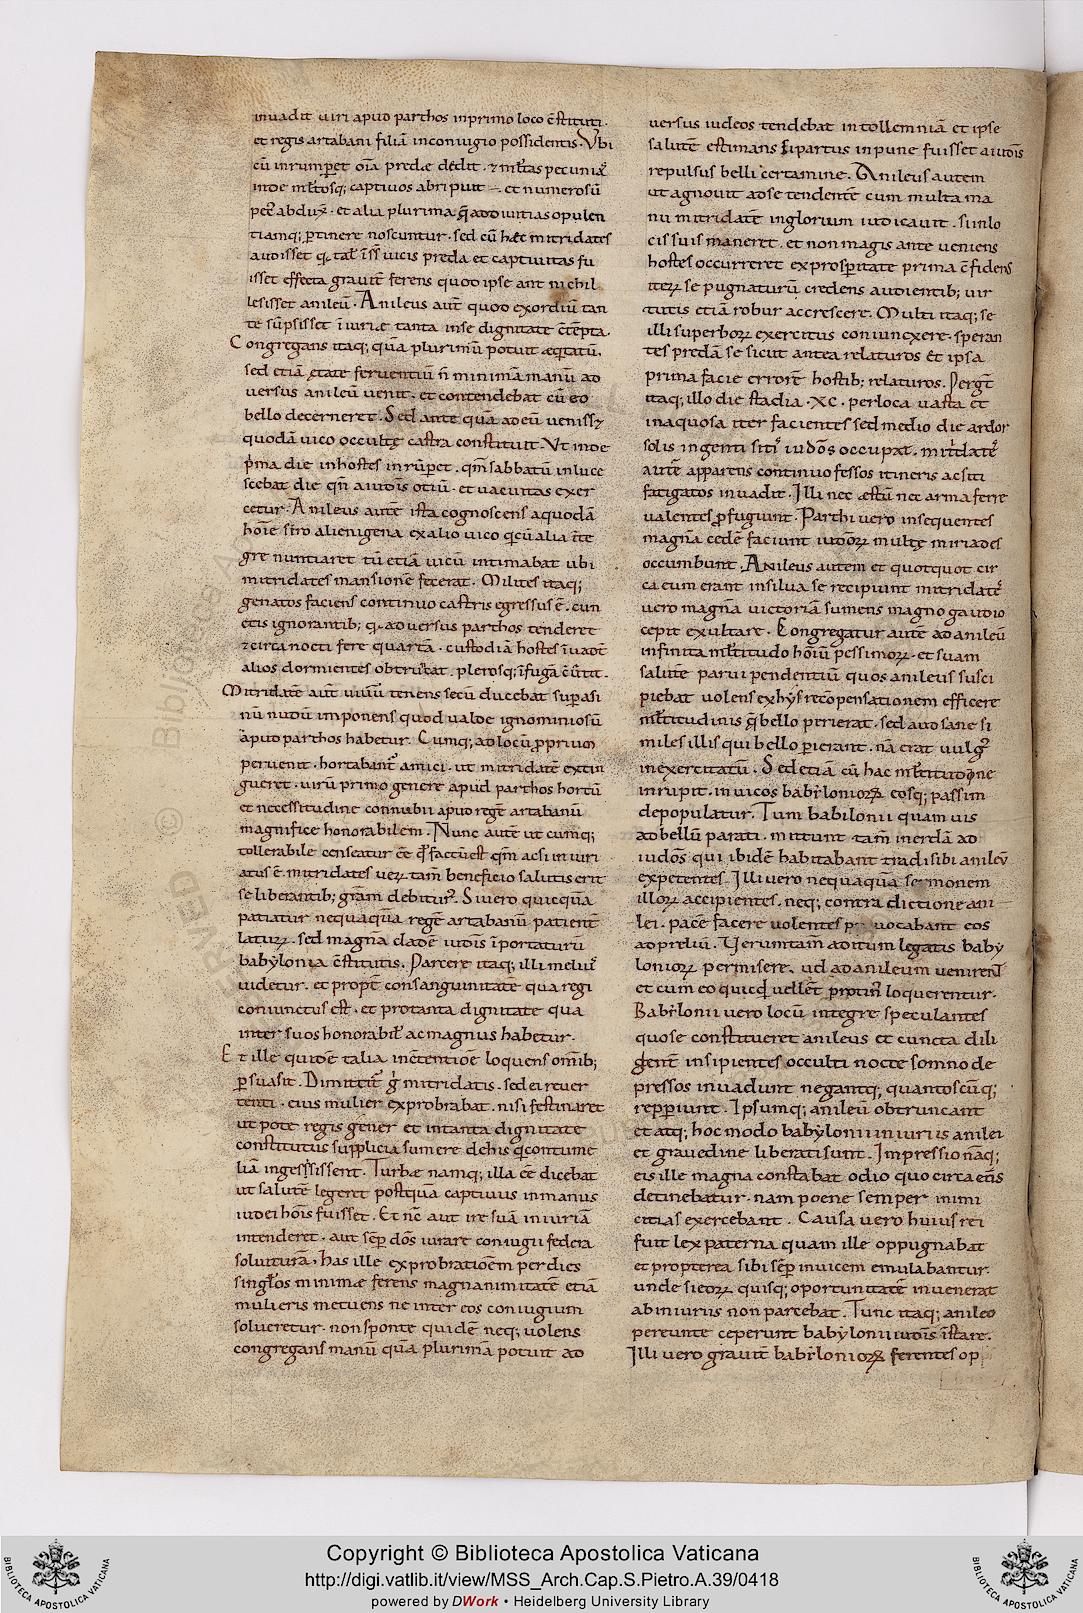 inuadit uiri apud parthos inprimo loco c̄stituti.
et regis artabani filiā inconiugio possidentis. Vbi
cū inrumpet om̄a predæ dedit. & mltas pecuniaꝝ
inde mltosq; captiuos abripuit. et numerosū
abdux̄. et alia plurima q̄ ad diuitias opulen
tiamq; ꝑtinere noscuntur. sed cū hæc mitridates
audisset uicis preda et captiuitas fu
isset effecta grauit̄ ferens quod ipse ante nichil
lesisset anileū. Anileus aut̄ quod exordiū tan
te sūpsisset iniuriæ tanta inse dignitate c̄tēpta.
Congregans itaq; quā plurimū potuit æq̄tatū.
sed etiā ętate feruentiū n̄ minimā manū ad
uersus anileū uenit. et contendebat cū eo
bello decerneret. Sed ante quā ad eū uenisset
quodā uico occultę castra constituit. Vt inde
p̄ma die inhostes inrūpet. qm̄ sabbatū inluce
scebat die qn̄ a iudeis otiū. et uacuitas exer
cetur. Anileus autē ista cognoscens aquodā
hoīe siro alienigena exalio uico
gre nuntiaret tū etiā uicū intimabat ubi
mitridates mansionē fecerat. Milites itaq;
genatos faciens continuo castris egressus ē. cun
ctis ignorantib; ꝙ aduersus parthos tenderet
& circa nocti fere quartā. custodiā hostes īuadt
alios dormientes obtrūcat. plerosq; ī fugā c̄uertit.
Mitridatē aut̄ uiuū tenens secū ducebat sup asi
nū nudū imponens quod ualde ignominiosū
apud parthos habetur. Cumq; ad locū ꝓprium
peruenit. hortabant̄ amici. ut mitridatē extin
gueret. uirū primo genere apud parthos hortū
et necessitudine connubii apud regē artabanū
magnifice honorabilem. Nunc autē ut cumq;
tollerabile censeatur ēe qd̄ factū est qm̄ acsi iniuri
atus ē. mitridates ueꝝ tam̄ beneficio salutis erit
se liberantib; gram̄ debitur. Si uero quicquā
patiatur nequaquā regē artabanū patient̄
laturū. sed magnā cladē iudeis īportaturū
babylonia c̄stitutis. Parcere itaq; illi meliuꝰ
uidetur. et propt̄ consanguinitatē qua regi
coniunctus est. et pro tanta dignitate qua
inter suos honorabil̄ ac magnus habetur.
Et ille quidē talia incētentiōe loquens om̄ib;
ꝑsuasit. Dimittit̄ g̊ mitridatis. sed ei reuer
tenti. eius mulier exprobrabat. nisi festinaret
ut pote regis gener et intanta dignitate
constitutus supplicia sumere de his q̄ contume
liā ingessissent. Turbæ namq; illa ēe dicebat
ut salutē legeret postquā captiuus in manus
iudei hoīs fuisset. Et nc̄ aut ire suā iniuriā
intenderet. aut sēp dos iurare coniugii federa
soluiturā. has ille exprobratioēm per dies
singłos minimæ ferens magnanimitatē etiā
mulieris metuens ne inter eos coniugium
solueretur. non sponte quidē neq; uolens
congregans manū quā plurimā potuit ad
uersus iudeos tendebat intollemniā et ipse
salutē estimans si partus inpune fuisset a iudeis
repulsus belli certamine. Anileus autem
ut agnouit ad se tendentē cum multa ma
nu mitridatē inglorium iudicauit. si inlo
cis suis maneret. et non magis ante ueniens
hostes occurreret ex prosperitate prima c̄fidens
iterꝝ se pugnaturū credens audientib; uir
tutis etiā robur accrescere. Multi itaq; se
illi superborꝝ exercitus coniuncxere. speran
tes predā se sicut antea relaturos et ipsa
prima facie errorē hostib; relaturos. Pergt̄
itaq; illo die stadia .xc. per loca uasta et
inaquosa iter facientes sed medio die ardor
solis ingenti siti iudos occupat. mitridateꝰ
autē apparens continuo fessos itineris ac siti
fatigatos inuadit. Illi nec æstū nec arma ferre
ualentes ꝓfugiunt. Parthi uero insequentes
magnā cedē faciunt iudeorꝝ multę miriades
occumbunt. Anileus autem et quotquot cir
ca eum erant insilua se recipiunt mitridateꝰ
uero magnā uictoriā sumens magno gaudio
cepit exultare. Congregatur autē ad anileū
infinita multitudo hoīum pessimorꝝ. et suam
salutē parui pendentiū quos anileus susci
piebat uolens ex hys recōpensationem efficere
multitudinis q̄ bello perierat. sed aud sane si
miles illis qui bello ꝑierant. nā erat uulgꝰ
inexercitatū. Sed etiā cū hac multitudine
inrupit. in uicos babyloniorꝝ eosq; passim
depopulatur. Tum babilonii quam uis
ad bellū parati. mittunt tam̄ in erdā ad
iudeos qui ibidē habitabant tradi sibi anileū
expetentes. Illi uero nequaquā sermonem
illorꝝ accipientes. neq; contra dictione ani
lei. pacē facere uolentes prouocabant eos
ad preliū. Uerumtam̄ aditum legatis baby
loniorꝝ permisere. ud ad anileum uenirent
et cum eo quicqd̄ uellet̄ protin̄ loquerentur.
Babilonii uero locū integre speculantes
quo se constitueret anileus et cuncta dili
gent̄ insipientes occulti nocte somno de
pressos inuadunt negantq; quantoscūq;
repperiunt. Ipsumq; anileū obtruncant
et atq; hoc modo babylonii iniuriis anilei
et grauedine liberati sunt. Impressionāq;
eis ille magna constabat odio quo circa eos
detinebatur. nam poene semper inimi
citias exercebant. Causa uero huius rei
fuit lex paterna quam ille oppugnabat
et propterea sibi sēp inuicem emulabantur.
unde si eorꝝ quisq; oportunitatē inuenerat
ab iniuriis non parcebat. Tunc itaq; anileo
pereunte ceperunt babylonii iudeis īstare.
Illi uero grauit̄ babiloniorꝝ ferentes op
Copyright © Biblioteca Apostolica Vaticana
http://digi.vatlib.it/view/MSS_Arch.Cap.S.Pietro.A.39/0418
powered by DWork • Heidelberg University Library
BIBLIOTECA APOSTOLICA VATICANA
BIBLIOTECA APOSTOLICA VATICANA